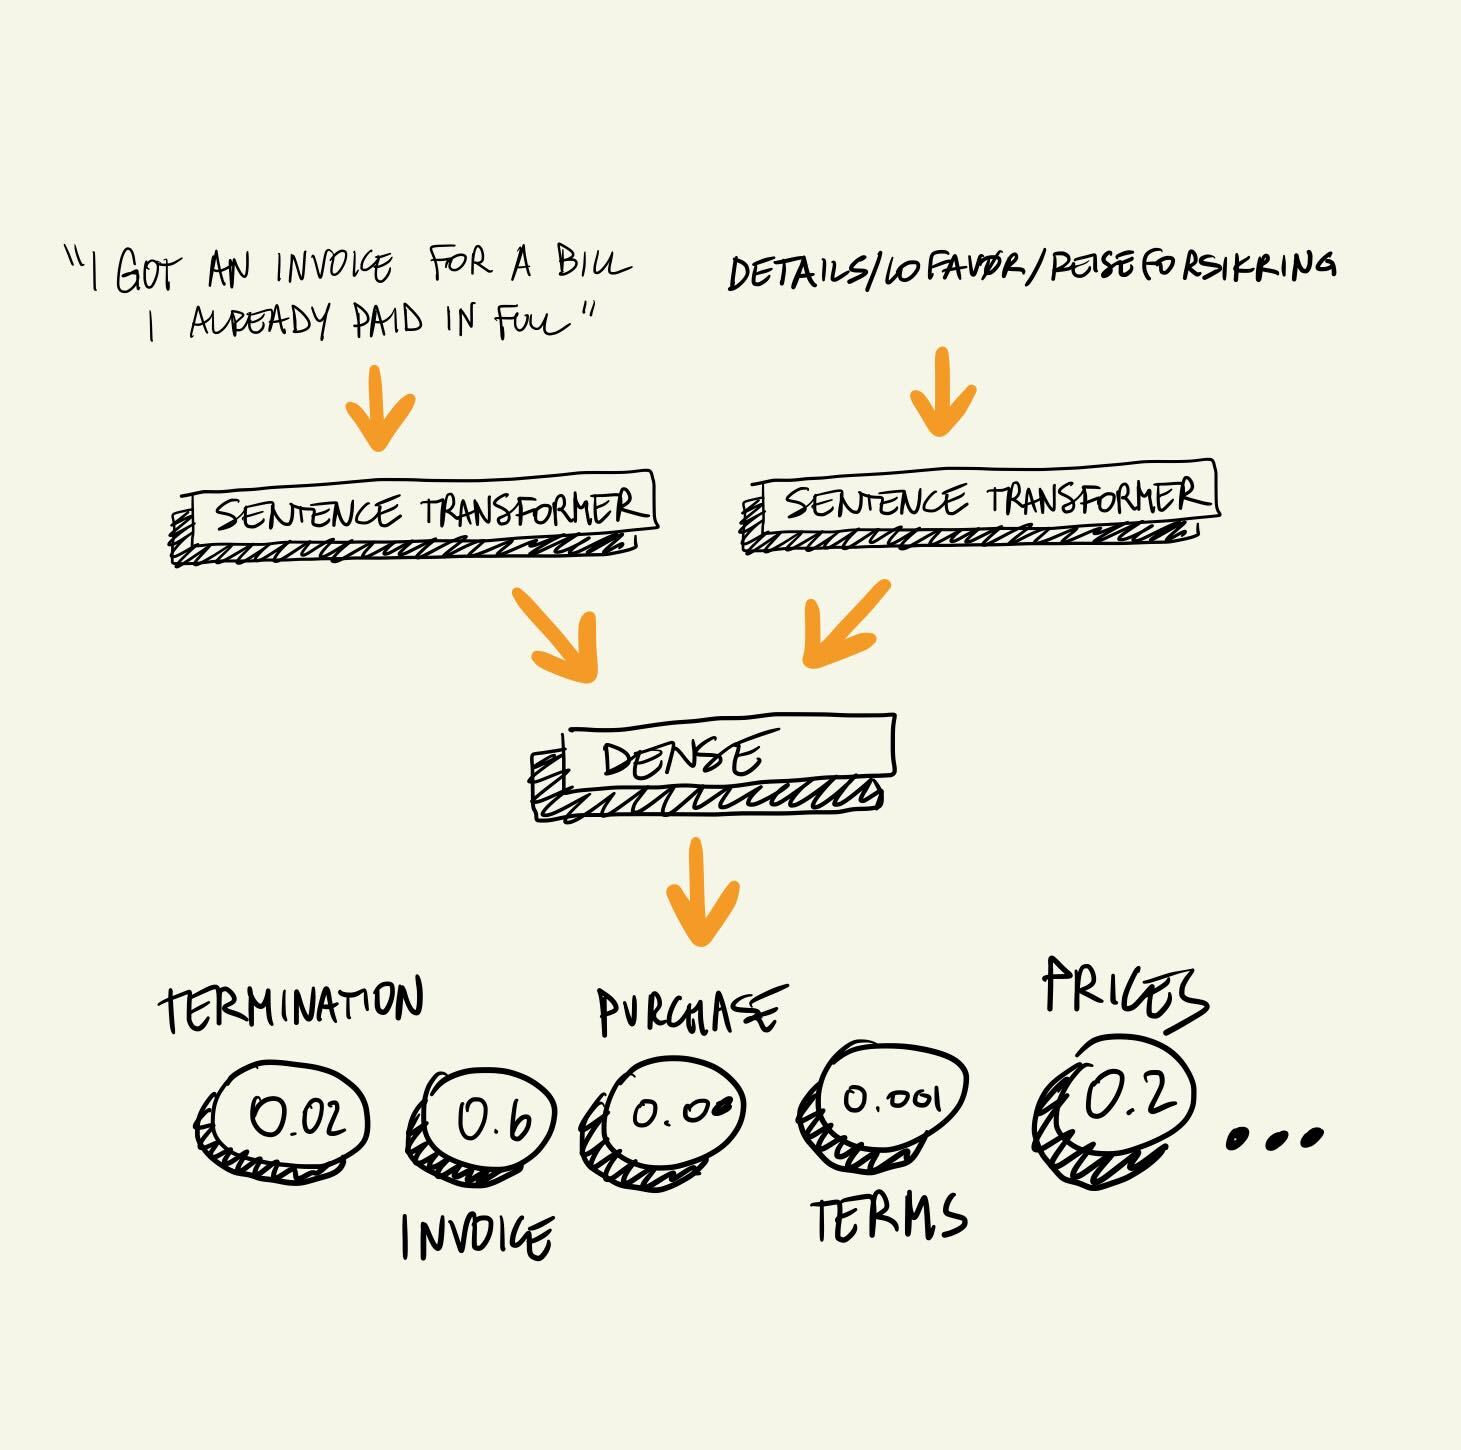 "I GOT AN INVOICE FOR A BILL
I ALREADY PAID IN FULL"
DETAILS/LOFAVØR/REISEFORSIKRING
SENTENCE TRANSFORMER
SENTENCE TRANSFORMER
DENSE
TERMINATION
PURCHASE
PRICES
0.02
0.6
0.001
0.2
...
INVOICE
TERMS